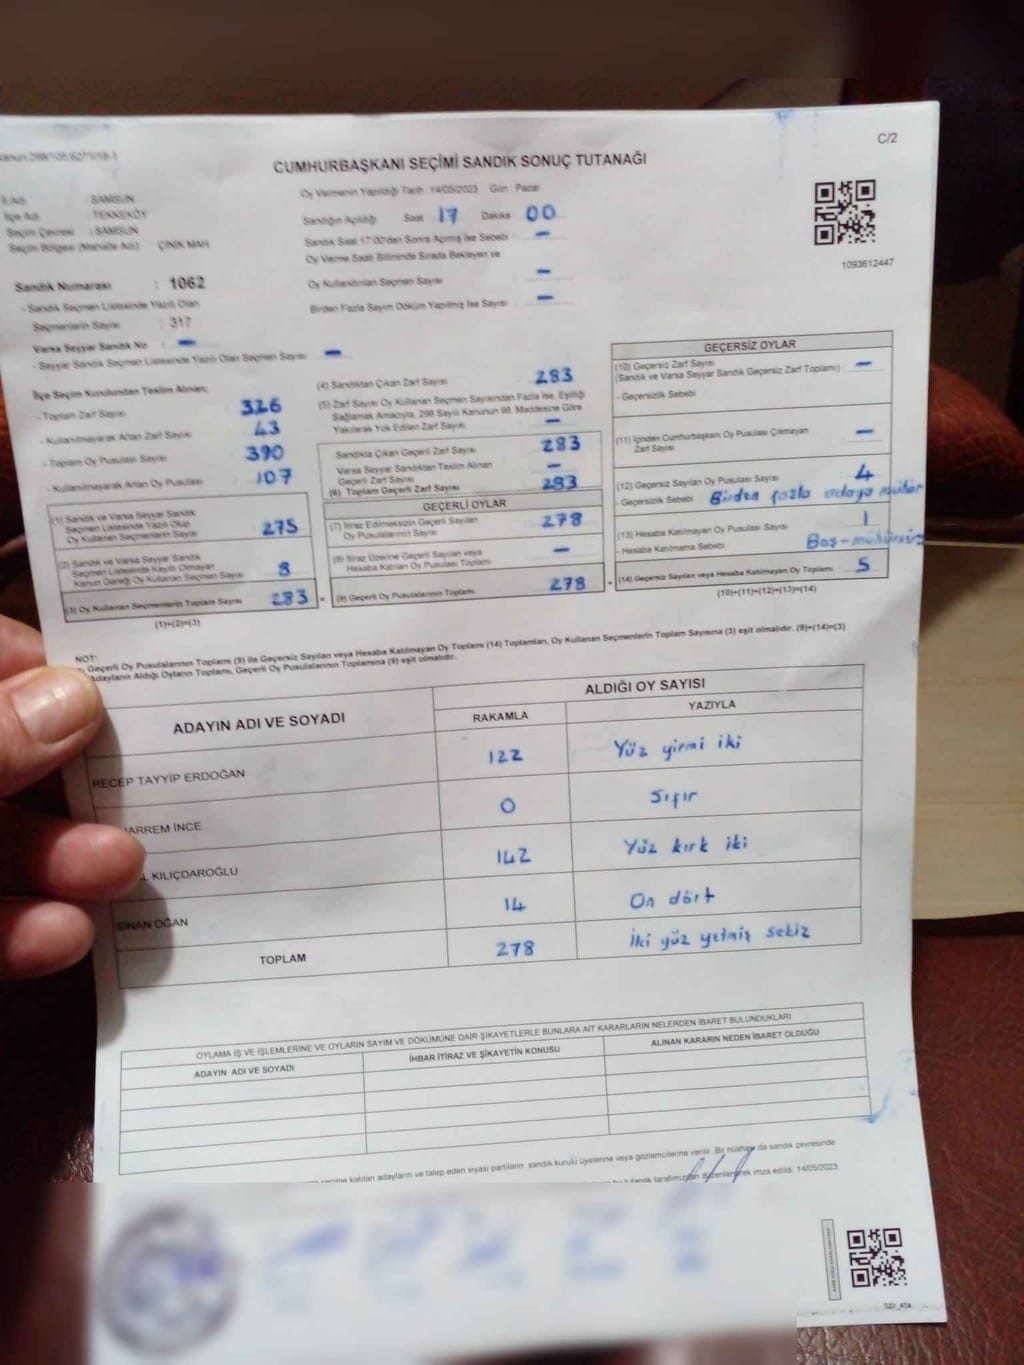 C/2
CUMHURBAŞKANI SEÇİMİ SANDIK SONUÇ TUTANAĞI
İl Adı : SAMSUN
İlçe Adı : TEKKEKÖY
Seçim Çevresi : SAMSUN
Seçim Bölgesi (Mahalle Adı) : ÇİNİK MAH.
Oy Vermenin Yapıldığı Tarih 14/05/2023 Gün : Pazar
Sandığın Açıldığı Saat 17 Dakika 00
Sandık Saat 17:00'den Sonra Açılmış İse Sebebi : -
Oy Verme Saati Bitiminde Sırada Bekleyen ve
Oy Kullandırılan Seçmen Sayısı -
Birden Fazla Sayım Döküm Yapılmış İse Sayısı -
1093612447
Sandık Numarası : 1062
- Sandık Seçmen Listesinde Yazılı Olan
Seçmenlerin Sayısı : 317
Varsa Seyyar Sandık No : -
- Seyyar Sandık Seçmen Listesinde Yazılı Olan Seçmen Sayısı : -
İlçe Seçim Kurulundan Teslim Alınan;
- Toplam Zarf Sayısı 326
- Kullanılmayarak Artan Zarf Sayısı 43
- Toplam Oy Pusulası Sayısı 390
- Kullanılmayarak Artan Oy Pusulası 107
(1) Sandık ve Varsa Seyyar Sandık
Seçmen Listesinde Yazılı Olup
Oy Kullanan Seçmenlerin Sayısı 275
(2) Sandık ve Varsa Seyyar Sandık
Seçmen Listesinde Kayıtlı Olmayan
Kanun Gereği Oy Kullanan Seçmen Sayısı 8
(3) Oy Kullanan Seçmenlerin Toplam Sayısı 283
(1)+(2)=(3)
(4) Sandıktan Çıkan Zarf Sayısı 283
(5) Zarf Sayısı Oy Kullanan Seçmen Sayısından Fazla İse, Eşitliği
Sağlamak Amacıyla, 298 Sayılı Kanunun 98. Maddesine Göre
Yakılarak Yok Edilen Zarf Sayısı -
Sandıkta Çıkan Geçerli Zarf Sayısı 283
Varsa Seyyar Sandıktan Teslim Alınan
Geçerli Zarf Sayısı -
(6) Toplam Geçerli Zarf Sayısı 283
GEÇERLİ OYLAR
(7) İtiraz Edilmeksizin Geçerli Sayılan
Oy Pusulalarının Sayısı 278
(8) İtiraz Üzerine Geçerli Sayılan veya
Hesaba Katılan Oy Pusulası Toplamı -
= (9) Geçerli Oy Pusulalarının Toplamı 278
GEÇERSİZ OYLAR
(10) Geçersiz Zarf Sayısı -
(Sandık ve Varsa Seyyar Sandık Geçersiz Zarf Toplamı)
- Geçersizlik Sebebi
(11) İçinden Cumhurbaşkanı Oy Pusulası Çıkmayan
Zarf Sayısı -
(12) Geçersiz Sayılan Oy Pusulası Sayısı 4
- Geçersizlik Sebebi Birden fazla adaya mühür
(13) Hesaba Katılmayan Oy Pusulası Sayısı 1
- Hesaba Katılmama Sebebi Boş-mühürsüz
+ (14) Geçersiz Sayılan veya Hesaba Katılmayan Oy Toplamı 5
(10)+(11)+(12)+(13)=(14)
NOT:
Geçerli Oy Pusulalarının Toplamı (9) ile Geçersiz Sayılan veya Hesaba Katılmayan Oy Toplamı (14) Toplamları, Oy Kullanan Seçmenlerin Toplam Sayısına (3) eşit olmalıdır. (9)+(14)=(3)
Adayların Aldığı Oyların Toplamı, Geçerli Oy Pusulalarının Toplamına (9) eşit olmalıdır.
ADAYIN ADI VE SOYADI ALDIĞI OY SAYISI
RAKAMLA YAZIYLA
RECEP TAYYİP ERDOĞAN 122 Yüz yirmi iki
ARREM İNCE 0 Sıfır
L KILIÇDAROĞLU 142 Yüz kırk iki
SİNAN OĞAN 14 On dört
TOPLAM 278 İki yüz yetmiş sekiz
OYLAMA İŞ VE İŞLEMLERİNE VE OYLARIN SAYIM VE DÖKÜMÜNE DAİR ŞİKAYETLERLE BUNLARA AİT KARARLARIN NELERDEN İBARET BULUNDUKLARI
ADAYIN ADI VE SOYADI İHBAR İTİRAZ VE ŞİKAYETİN KONUSU ALINAN KARARIN NEDEN İBARET OLDUĞU
seçime katılan adayların ve talep eden siyasi partilerin sandık kurulu üyelerine veya gözlemcilerine verilir. Bir nüshası da sandık çevresinde
bu tutanak tarafımızdan düzenlenerek imza edildi. 14/05/2023